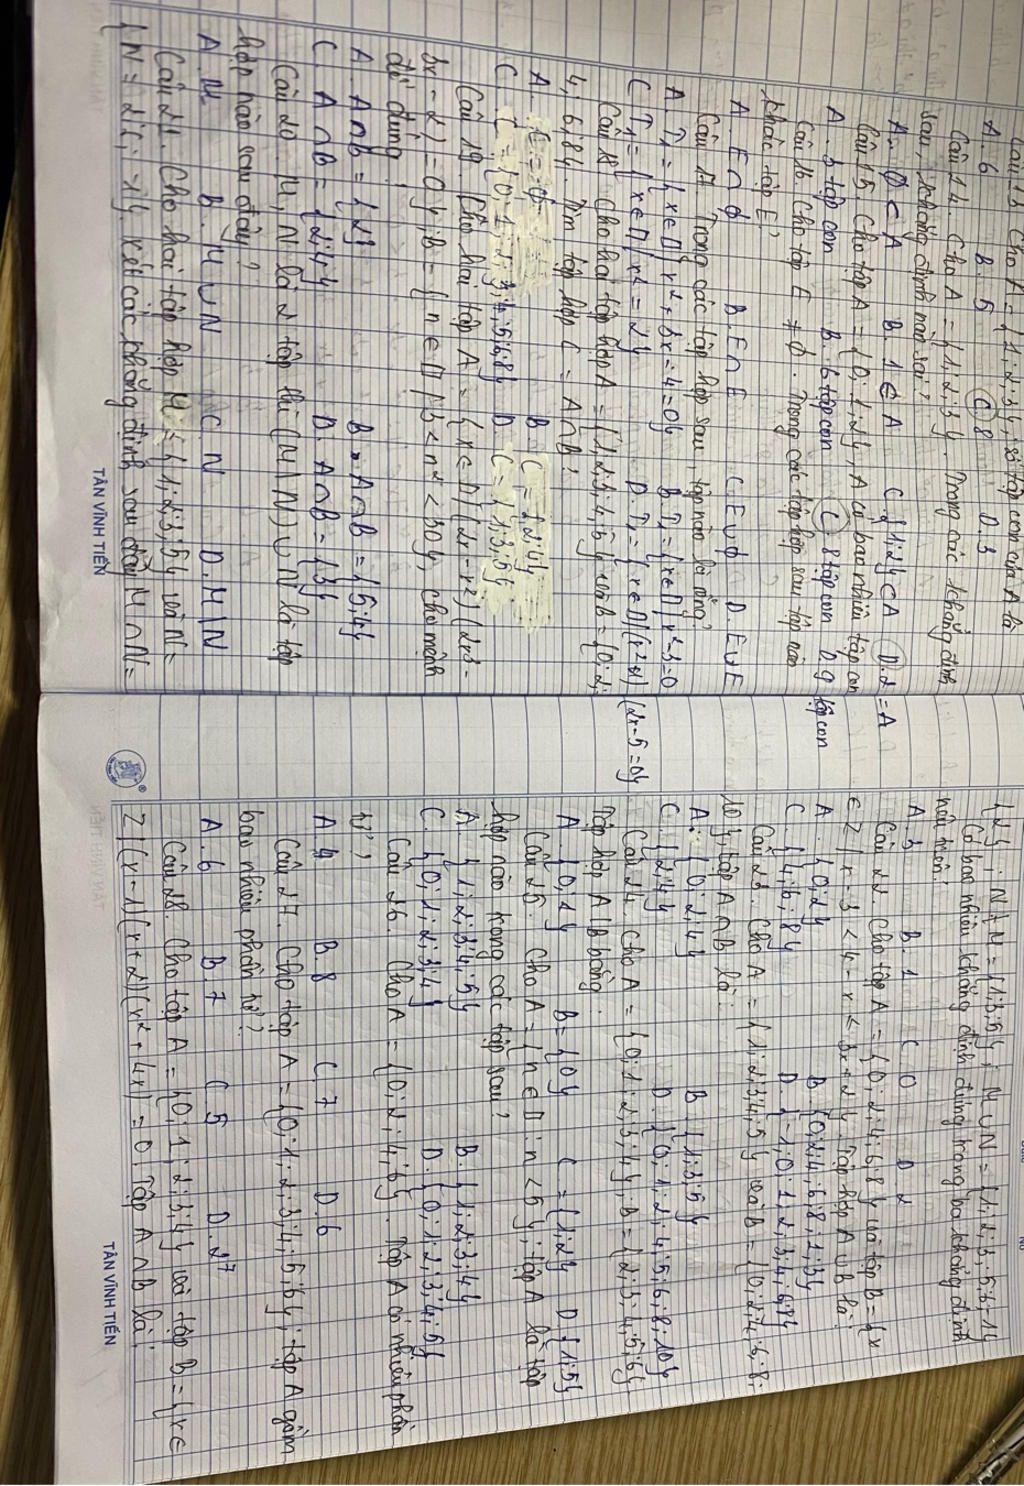 Câu 13 Cho A = {1;2;3}, số tập con của A là
A. 6 B. 5 C 8 D. 3
Câu 14. Cho A = {1;2;3}. Trong các khẳng định
sau, khẳng định nào sai?
A. ∅ ⊂ A B. 1 ∈ A C. {1;2} ⊂ A D. 2 = A
Câu 15. Cho tập A = {0;1;2}, A có bao nhiêu tập con
A. 3 tập con B. 6 tập con C 8 tập con D. 9 tập con
Câu 16. Cho tập E ≠ ∅. Trong các tập hợp sau tập nào
khác tập E?
A. E ∩ ∅ B. E ∩ E C. E ∪ ∅ D. E ∪ E
Câu 17 Trong các tập hợp sau, tập nào là rỗng?
A. T₁ = {x ∈ ▯ | x² + 3x - 4 = 0} B. T₁ = {x ∈ ▯ | x² - 3 = 0
C T₁ = {x ∈ ▯ | x² = 2} D. T₁ = {x ∈ ▯ | (x²+1)(2x-5 = 0}
Câu 18 Cho hai tập hợp A = {1;2;3;4;5} và B = {0;2;
4;6;8}. Tìm tập hợp C = A ∩ B?
A. C = ∅ B. C = {2;4}
C C = {0;1;2;3;4;5;6;8} D. C = {1;3;5}
Câu 19. Cho hai tập A = {x ∈ ▯ | (2x - x²)(2x³ -
3x - 2) = 0}; B = {n ∈ ▯ | 3 < n² < 30}, chọn mệnh
đề đúng?
A. A ∩ B = {2} B. A ∩ B = {5;4}
C A ∩ B = {2;4} D. A ∩ B = {3}
Câu 20. M, N là 2 tập thì (M \ N) ∪ N là tập
hợp nào sau đây?
A. M B. M ∪ N C. N D. M \ N
Câu 21. Cho hai tập hợp M = {1;2;3;5} và N =
{ xét các khẳng định sau đây M ∩ N =
TÂN VĨNH TIẾN
{2}; N \ M = {1;3;5}; M ∪ N = {1;2;3;5;6;
Có bao nhiêu khẳng định đúng trong ba khẳng định
nêu trên?
A. 3 B. 1 C. 0 D. 2
Câu 22. Cho tập A = {0;2;4;6;8} và tập B = {x
∈ Z | x - 3 < 4 - x ≤ 3x + 2}. Tập hợp A ∪ B là:
A. {0;2} B. {0;2;4;6;8;1;3}
C. {4;6;8} D. {-1;0;1;2;3;4;6;8}
Câu 23. Cho A = {1;2;3;4;5} và B = {0;2;4;6;8;
10}, tập A ∩ B là:
A. {0;2;4} B {1;3;5}
C. {2;4} D. {0;1;2;4;5;6;8;10}
Câu 24. Cho A = {0;1;2;3;4}, B = {2;3;4;5;6}.
Tập hợp A \ B bằng:
A. {0;1} B = {0} C = {1;2} D {1;5}
Câu 25. Cho A = {n ∈ ▯ : n < 5}; tập A là tập
hợp nào trong các tập sau?
A. {1;2;3;4;5} B. {1;2;3;4}
C. {0;1;2;3;4} D. {0;1;2;3;4;5}
Câu 26. Cho A = {0;2;4;6}. Tập A có nhiêu phần
tử?
A 4 B. 8 C. 7 D. 6
Câu 27. Cho tập A = {0;1;2;3;4;5;6}; tập A gồm
bao nhiêu phần tử?
A. 6 B. 7 C 5 D. 2⁷
Câu 28. Cho tập A = {0;1;2;3;4} và tập B = {x ∈
Z | (x - 1)(x + 2)(x² + 4x) = 0. Tập A ∩ B là:
TÂN VĨNH TIẾN